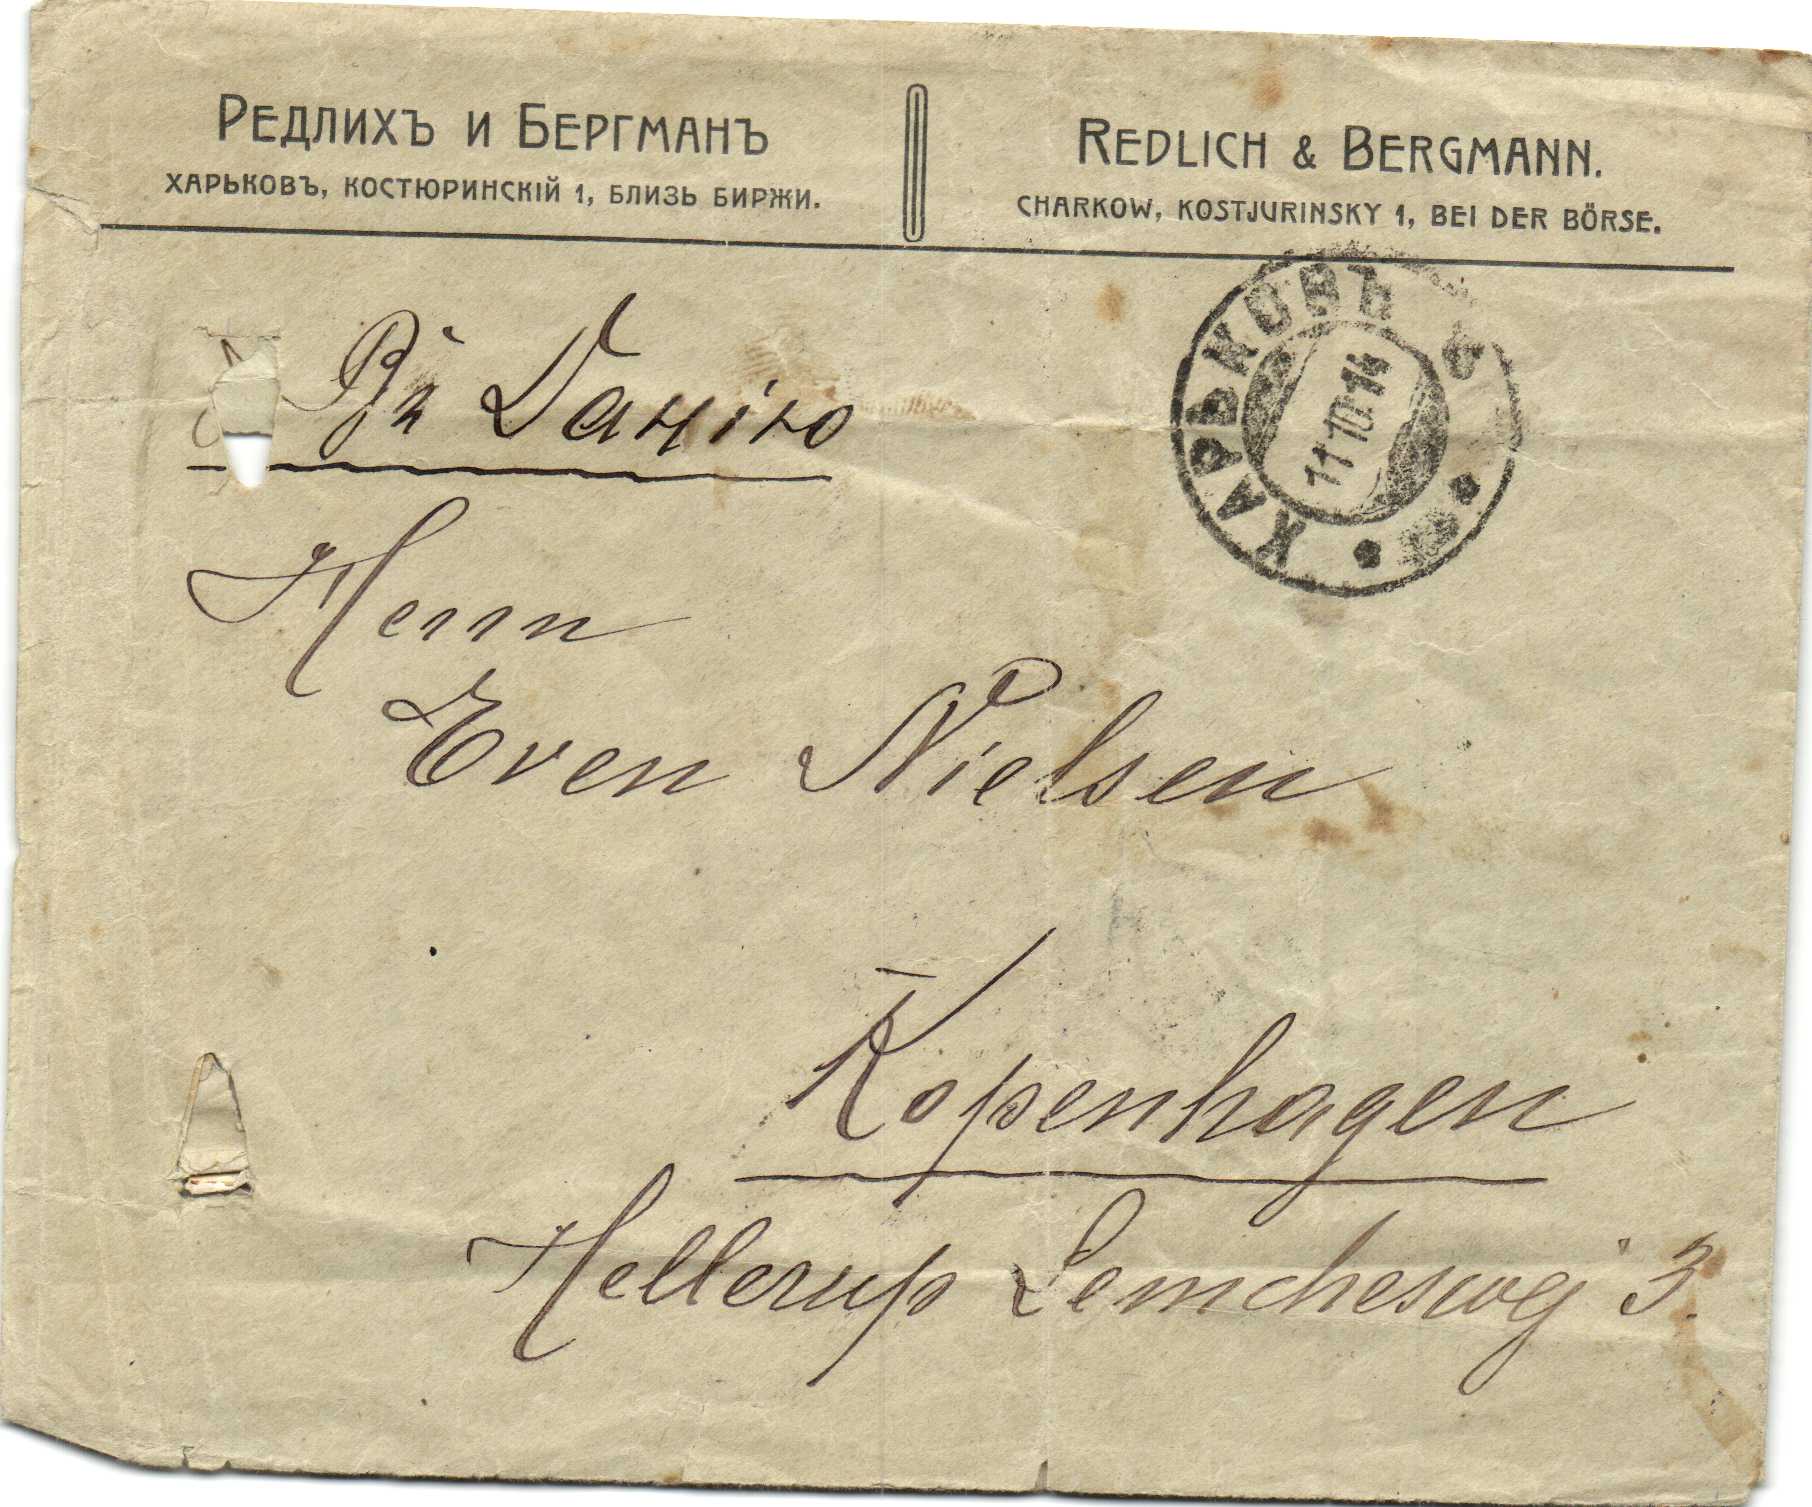 Редлихъ и Бергманъ
Харьковъ, Костюринскій 1, близь Биржи.
Redlich & Bergmann.
Charkow, Kostjurinsky 1, bei der Börse.
ХАРЬКОВЪ
11 10.14
Въ Данію
Herrn
Even Nielsen
Kopenhagen
Hellerup Lemchesweg 3.